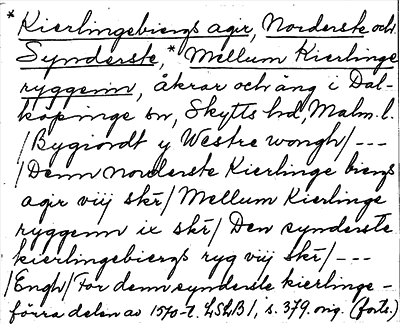 *Kierlingebiergs agir, Norderste och
Synderste,* Mellum Kierlinge
ryggenn, åkrar och äng i Dal-
köpinge sn, Skytts hd, Malm. l.
/Bygiordt y Westre wongh/ ---
/Denn norderste Kierlinge biergs
agir viij skr̄/ Mellum Kierlinge
ryggenn ix skr̄/ Den synderste
kierlingebiergs ryg viij skr̄/ ---
/Engh/ For denn synderste kierlinge -
förra delen av 1570-t. LSLB 1, s. 379. orig. (forts.)